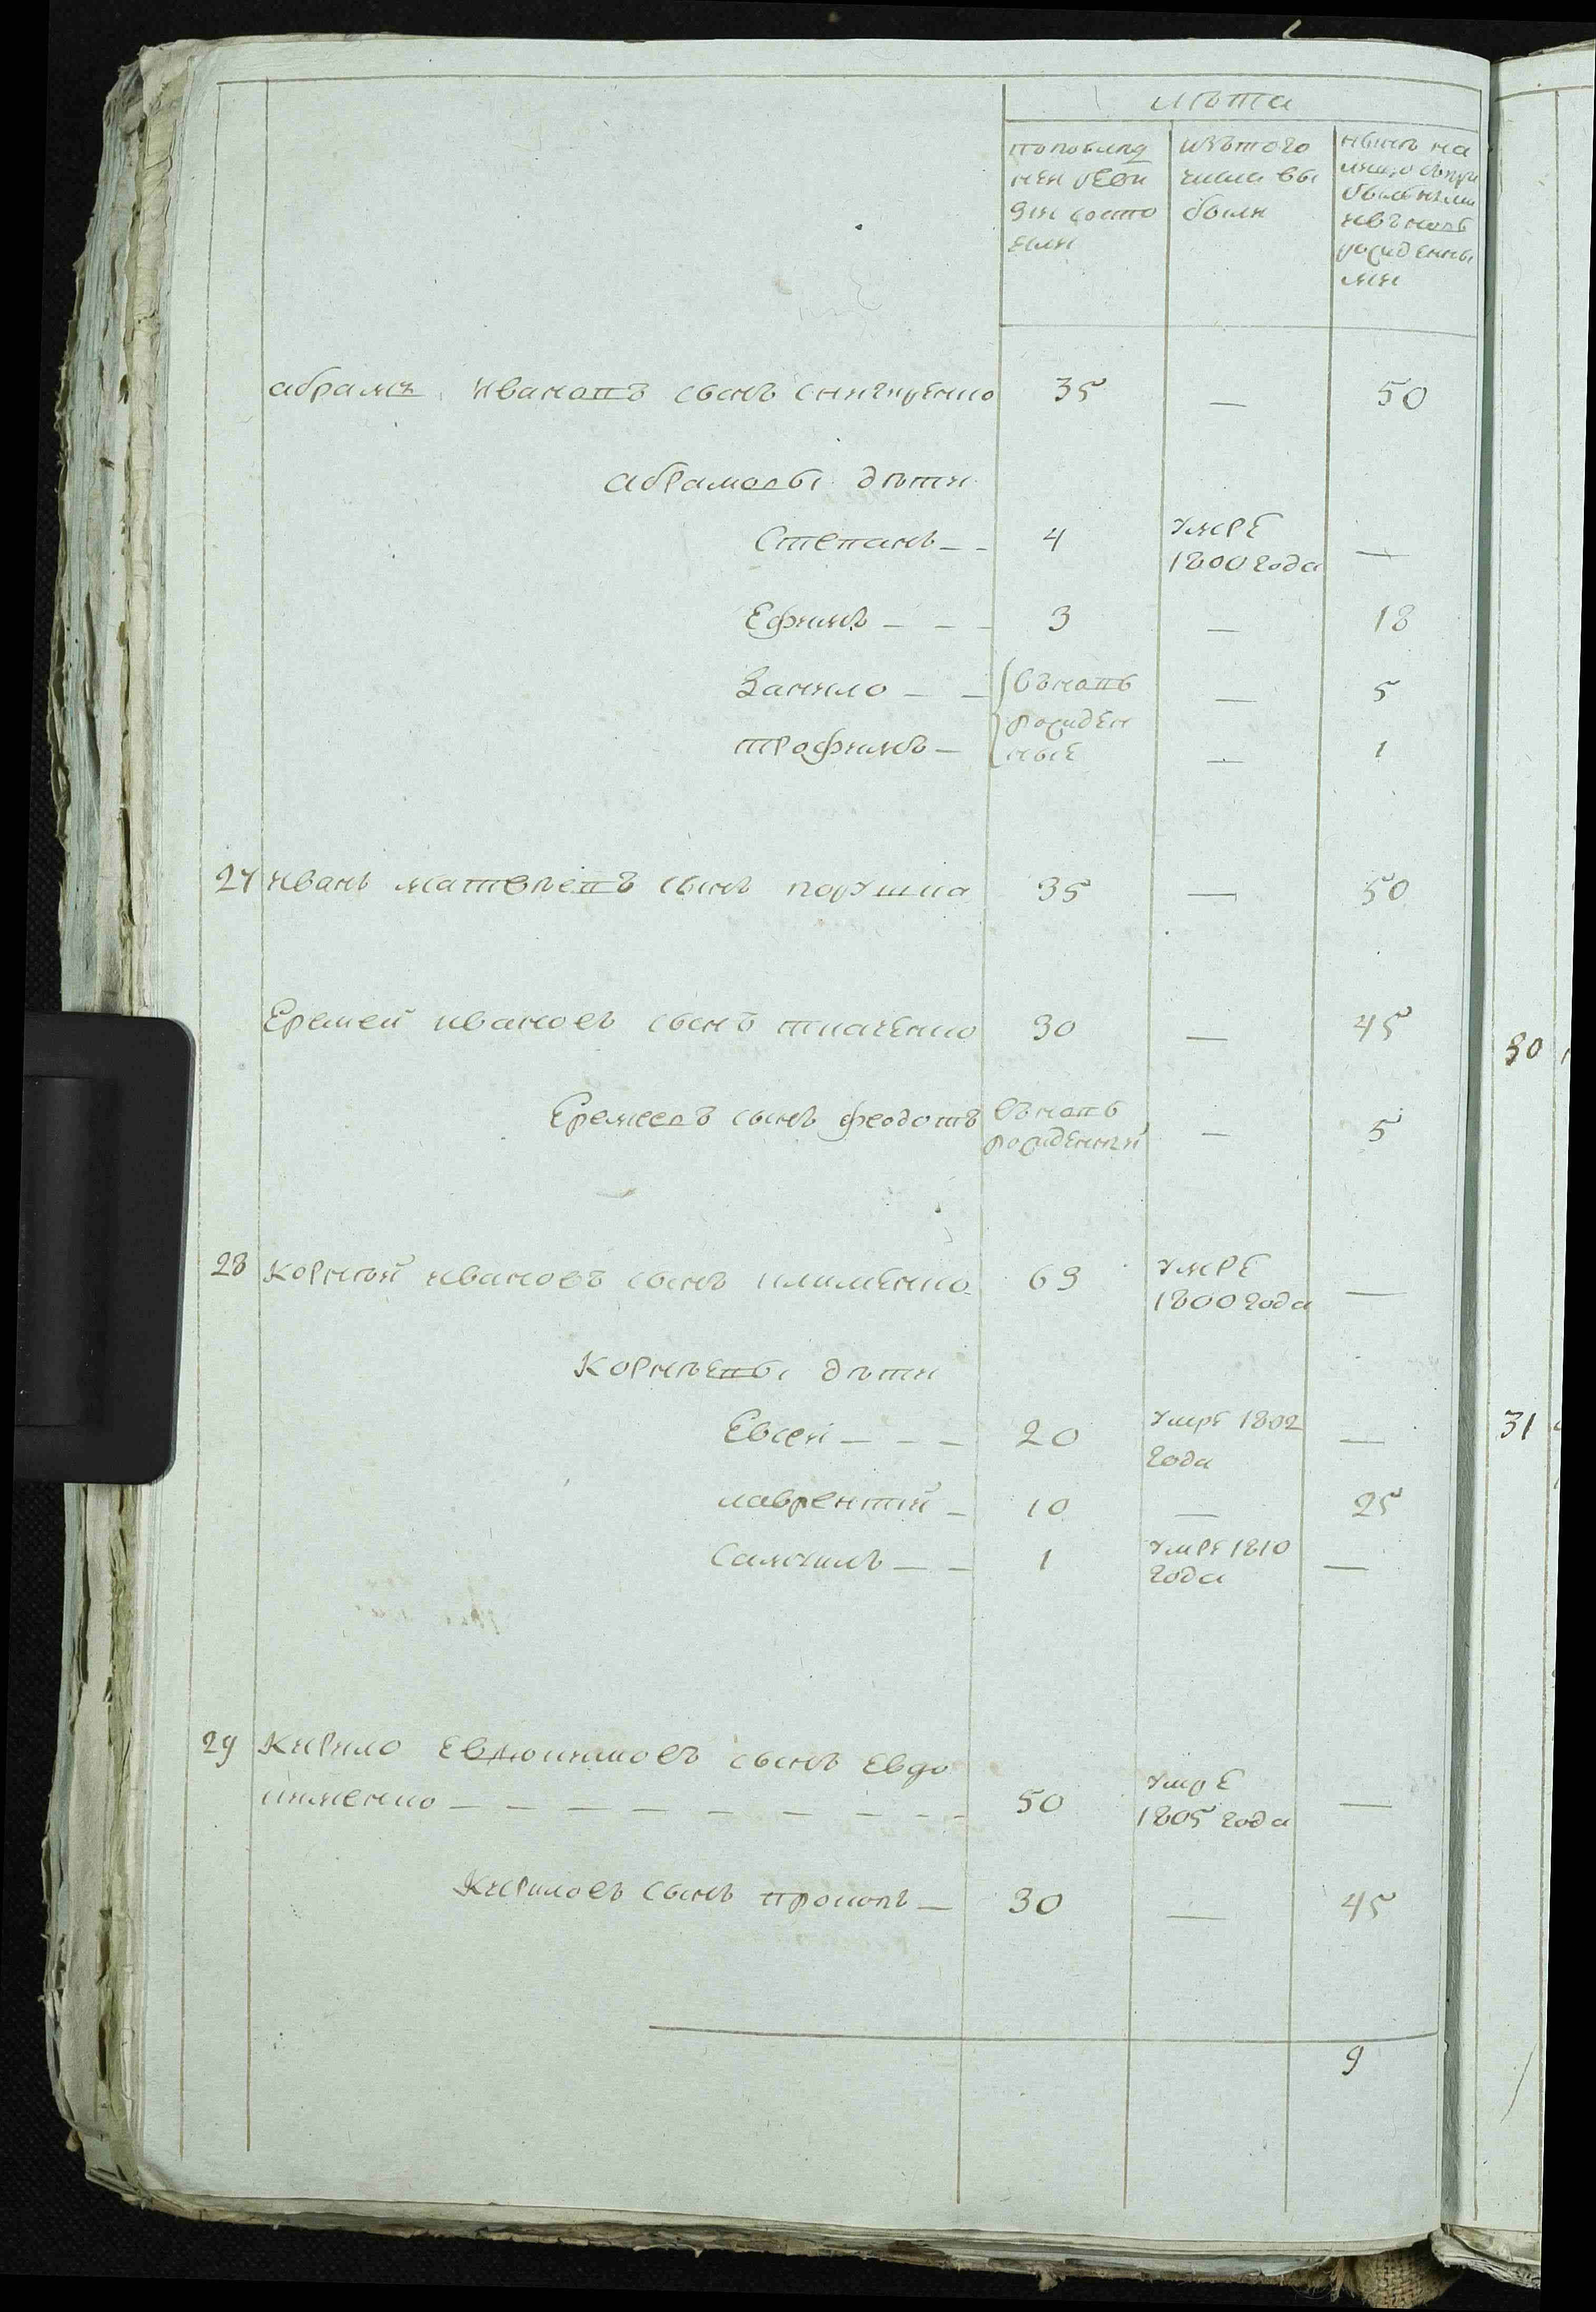 лѣта
попослѣд
ней реви
зіи состо
яли
изътого
числа вы
были
нынѣ на
лицо съпри
былыми
ивъновь
рожденны
ми
абрамъ Ивановъ сынъ 35 — 50
абрамовы дѣти
Степанъ — — 4 умре
1800 года —
Ефимъ — — — 3 — 18
Данило — — въновь — 5
рожден
трофимъ — ные — 1
27 Иванъ матвѣевъ сынъ порушка 35 — 50
Еремей ивановъ сынъ ткаченко 30 — 45
Еремеевъ сынъ феодотъ въновь
рожденный — 5
28 Корнѣй ивановъ сынъ клименко 69 умре
1800 года —
Корнѣевы дѣти
Евсей — — — 20 умре 1802
года —
лаврентій — 10 — 25
Самоилъ — — 1 умре 1810
года —
29 Кирило Евдокимовъ сынъ Евдо
кименко — — — — — — — — 50 умре
1805 года —
Кириловъ сынъ прокопъ — 30 — 45
9
30
31